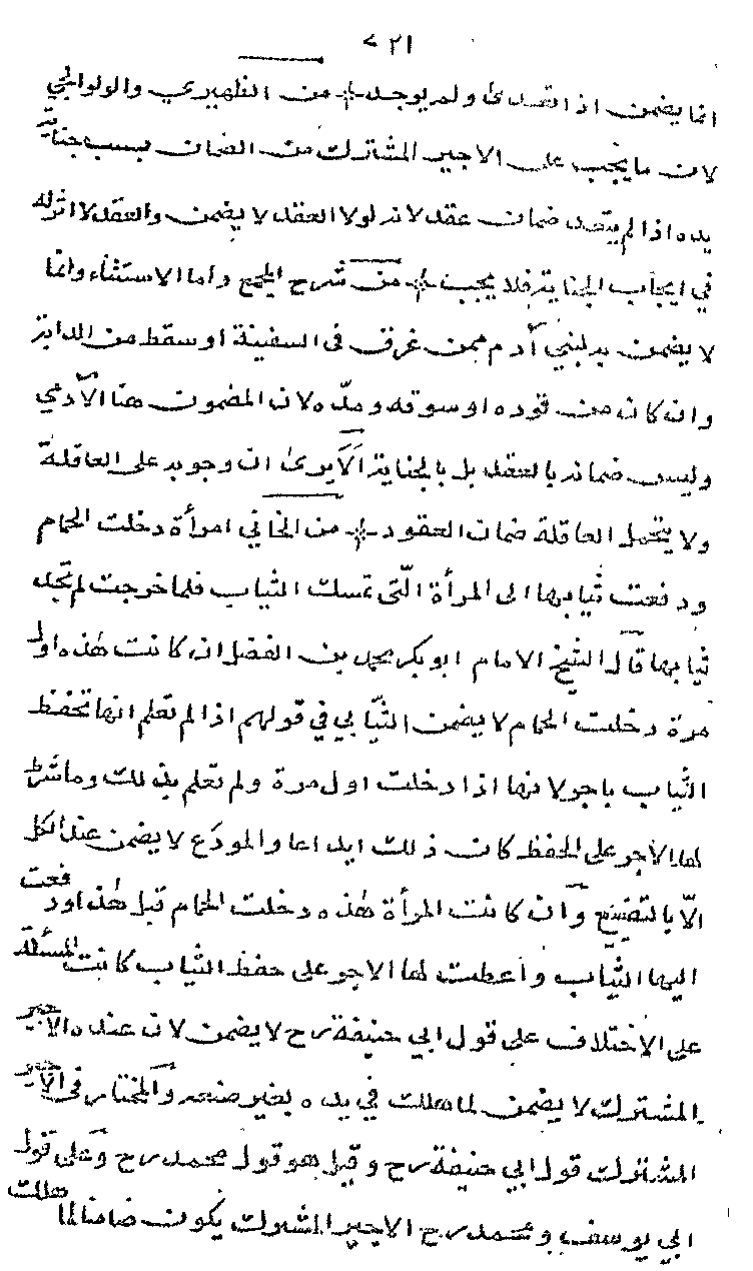 ٧٢١
انما يضمن اذا تعدى ولم يوجد من الظهيري والولوالجي
لان ما يجب على الاجير المشترك من الضمان بسبب جناية
يده اذا لم يتعد ضمان عقد لانه لولا العقد لا يضمن والعقد لا اثر له
في ايجاب الجناية فلا يجب من شرح المجمع واما الاستثناء وانما
لا يضمن به لبني آدم ممن غرق فى السفينة او سقط من الدابة
وان كان من قوده او سوقه ومدّه لان المضمون هنا الآدمي
وليس ضمانه بالعقد بل بالجناية ألا يرى ان وجوبه على العاقلة
ولا يتحمل العاقلة ضمان العقود من الخاني امرأة دخلت الحمام
ودفعت ثيابها الى المرأة الّتى تمسك الثياب فلما خرجت لم تجد
ثيابها قال الشيخ الامام ابو بكر محمد بن الفضل ان كانت هذه اول
مرة دخلت الحمام لا يضمن الثيابي في قولهم اذا لم تعلم انها تحفظ
الثياب باجر لانها اذا دخلت اول مرة ولم تعلم بذلك وما شرط
لها الاجر على الحفظ كان ذلك ايداعا والمودَع لا يضمن عند الكل
الّا بالتضييع وان كانت المرأة هذه دخلت الحمام قبل هذا ودفعت
اليها الثياب واعطت لها الاجر على حفظ الثياب كانت المسئلة
على الاختلاف على قول ابي حنيفة رح لا يضمن لان عنده الاجير
المشترك لا يضمن لما هلك في يده بغير صنعه والمختار فى الاجير
المشترك قول ابي حنيفة رح وقيل هو قول محمد رح وعلى قول
ابي يوسف ومحمد رح الاجير المشترك يكون ضامنا لما هلك